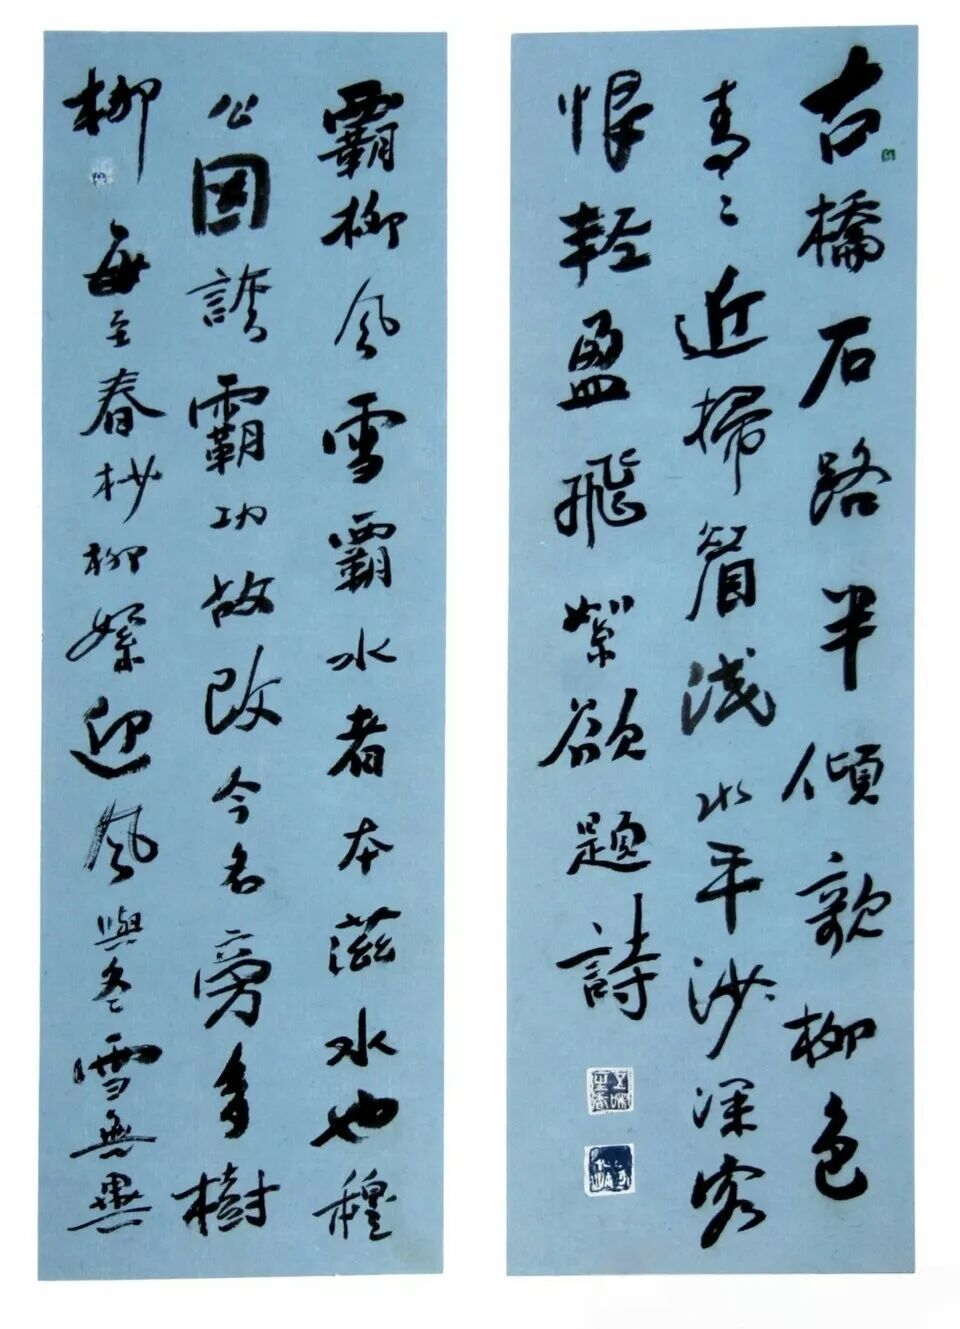 古橋石路半傾欹柳色
青〻近掃眉淺水平沙深客
恨輕盈飛絮欲題詩
霸柳風雪霸水者本滋水也穆
公因誇霸功故改今名旁多樹
柳每至春杪柳絮迎風與冬雪無異